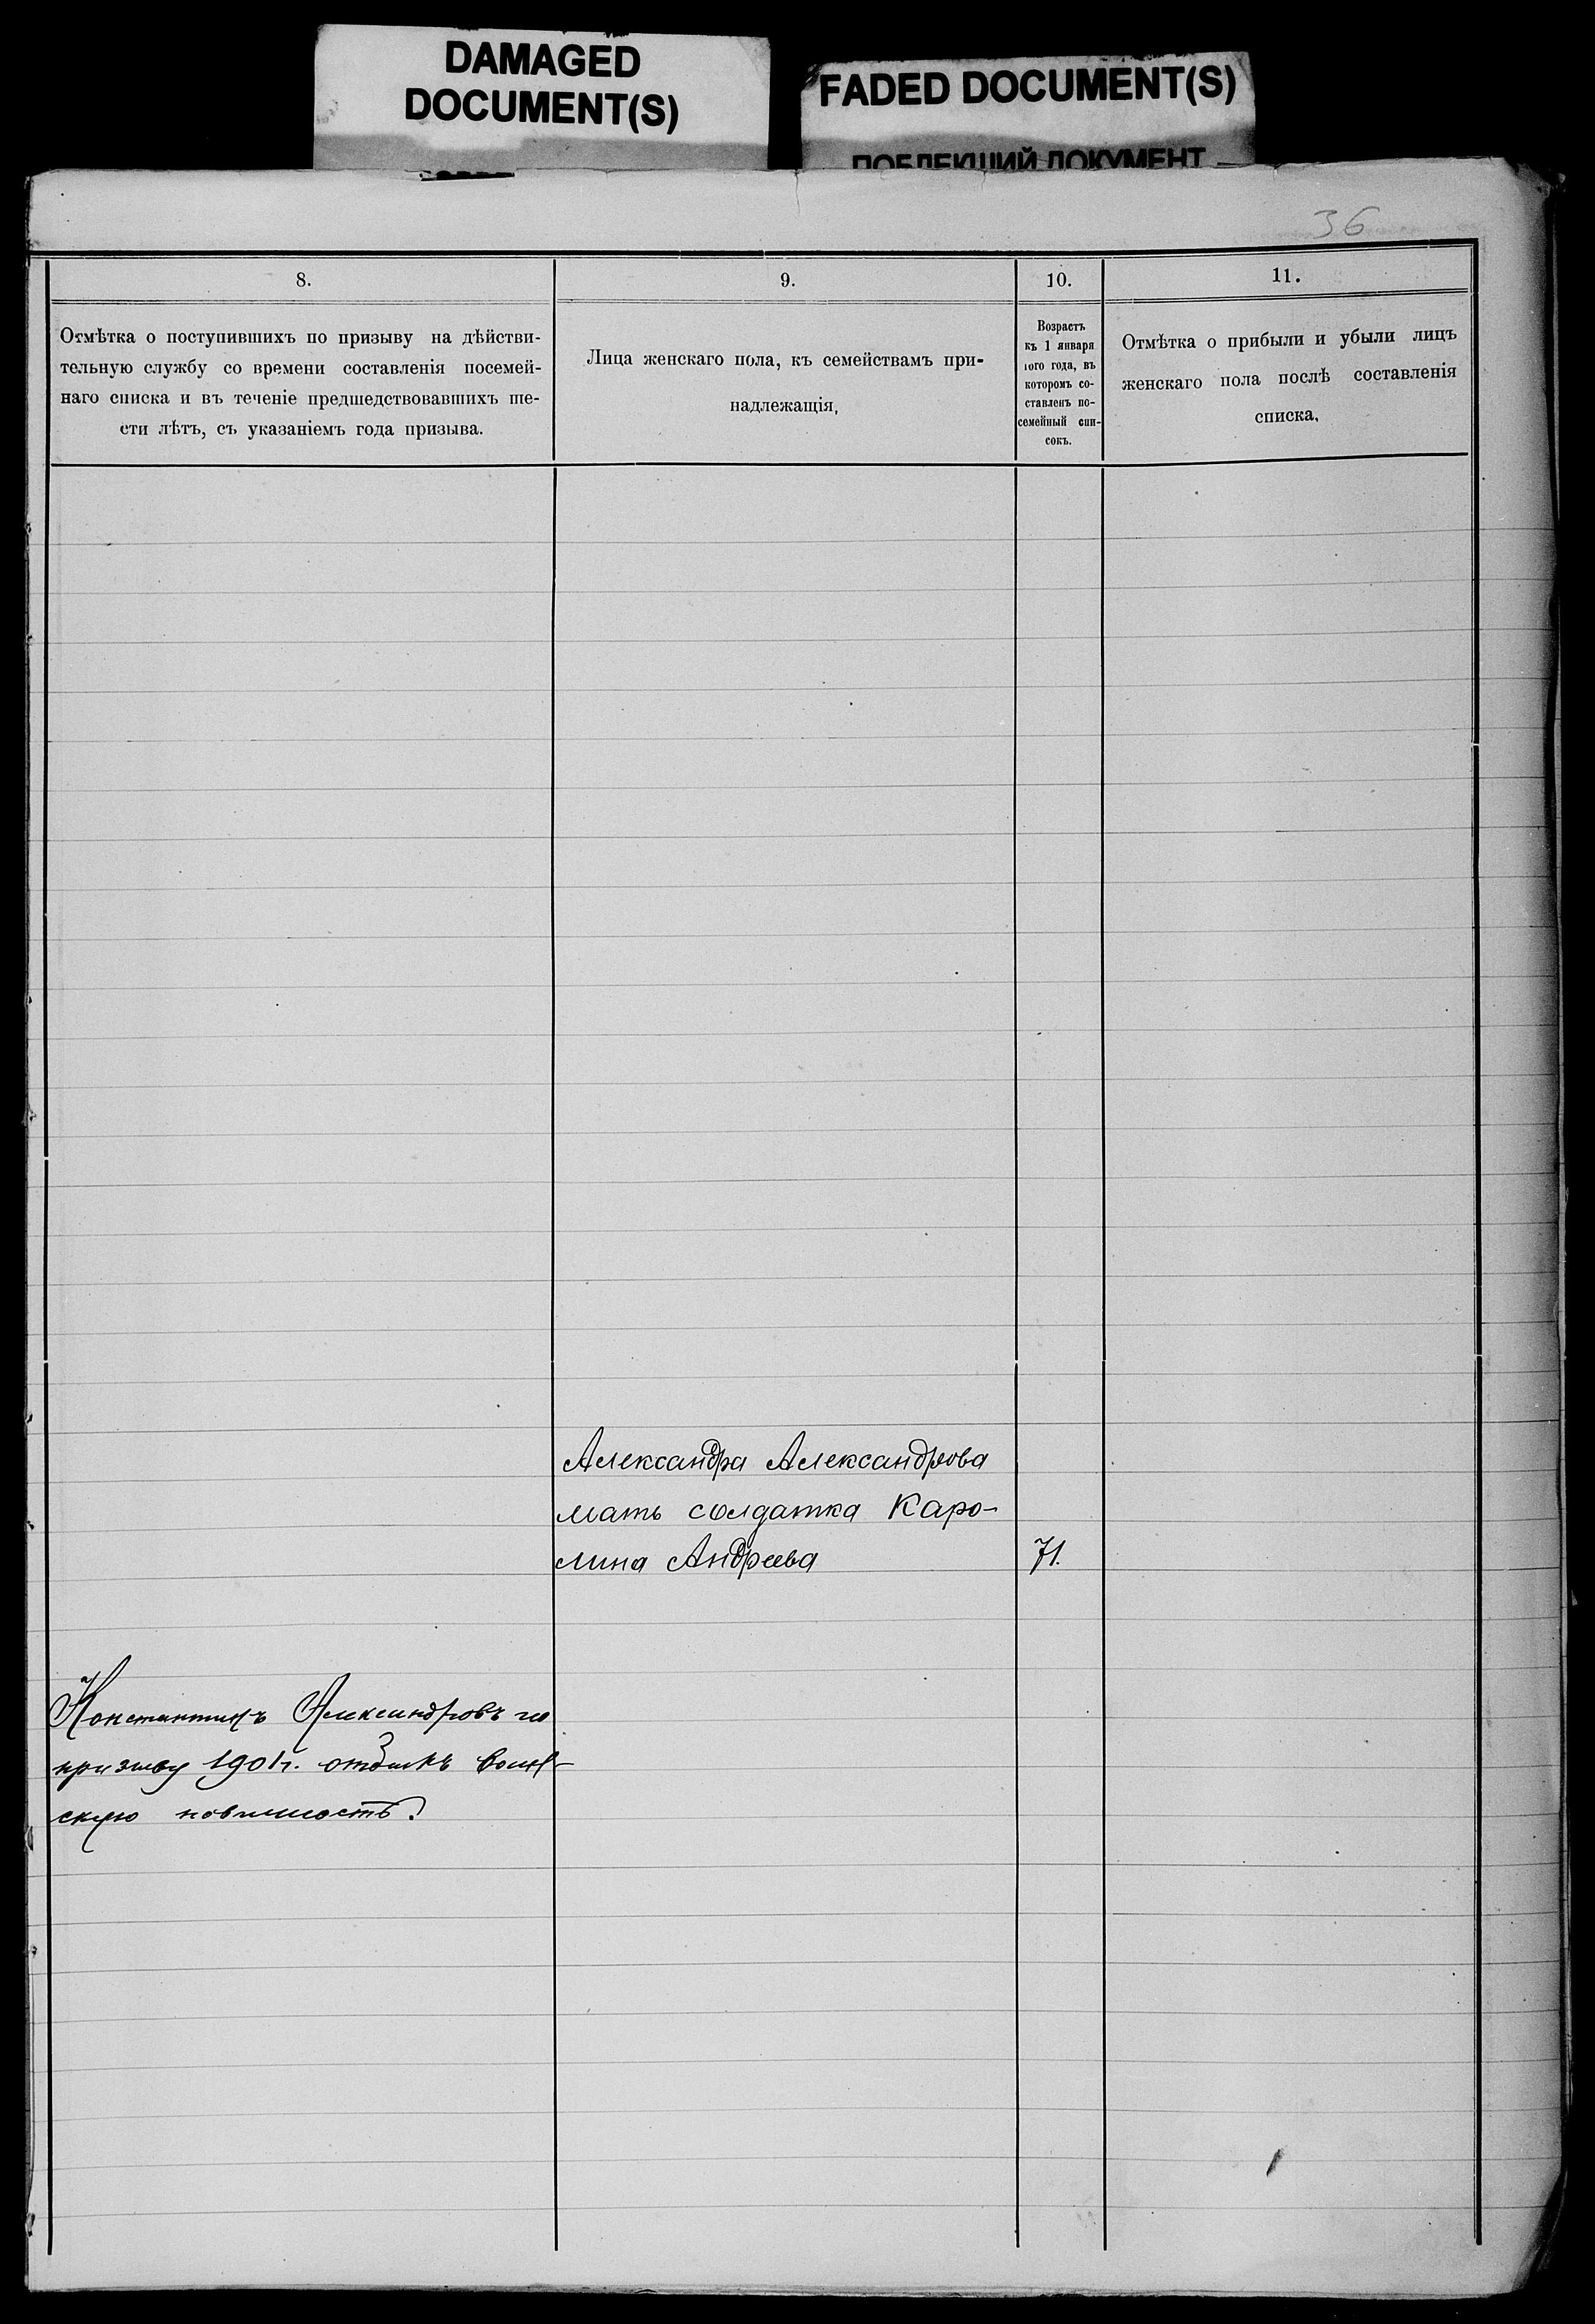 DAMAGED
DOCUMENT(S)
FADED DOCUMENT(S)
ПОБЛЕКШИЙ ДОКУМЕНТ
36
8.
9.
10.
11.
Отмѣтка о поступившихъ по призыву на дѣйстви-
тельную службу со времени составленія посемей-
наго списка и въ теченіе предшедствовавшихъ ше-
сти лѣтъ, съ указаніемъ года призыва.
Лица женскаго пола, къ семействамъ при-
надлежащія,
Возрастъ
къ 1 января
того года, въ
которомъ со-
ставленъ по-
семейный спи-
сокъ.
Отмѣтка о прибыли и убыли лицъ
женскаго пола послѣ составленія
списка.
Александра Александрова
мать солдатка Каро-
лина Андреева
71.
Константинъ Александровъ по
призыву 1901г. отбылъ воин-
скую повинность.